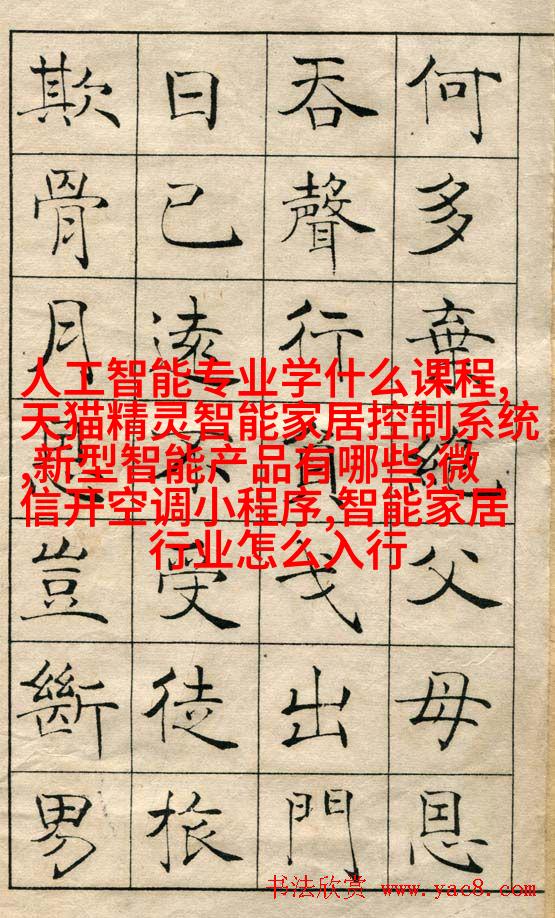 何多棄絕父母恩
吞聲行負戈出門
日已遠不受徒旅
欺骨月豈斷男
人工智能专业学什么课程,
天猫精灵智能家居控制系统
,新型智能产品有哪些,微
信开空调小程序,智能家居
行业怎么入行
书法欣赏 www.yac8.com